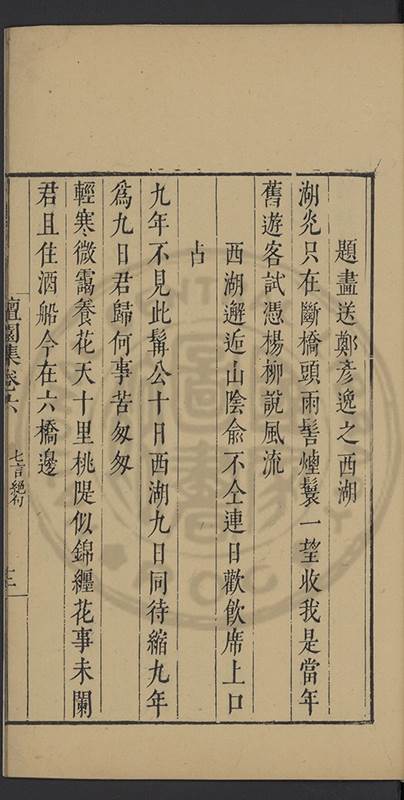 題畫送鄭彥逸之西湖
湖光只在斷橋頭雨髻煙鬟一望收我是當年
舊遊客試憑楊柳說風流
西湖邂逅山陰兪不仝連日歡飮席上口
占
九年不見此髯公十日西湖九日同待縮九年
爲九日君歸何事苦匆匆
輕寒微靄養花天十里桃隄似錦纏花事未闌
君且住酒船今在六橋邊
檀園集卷六
七言絕句
三